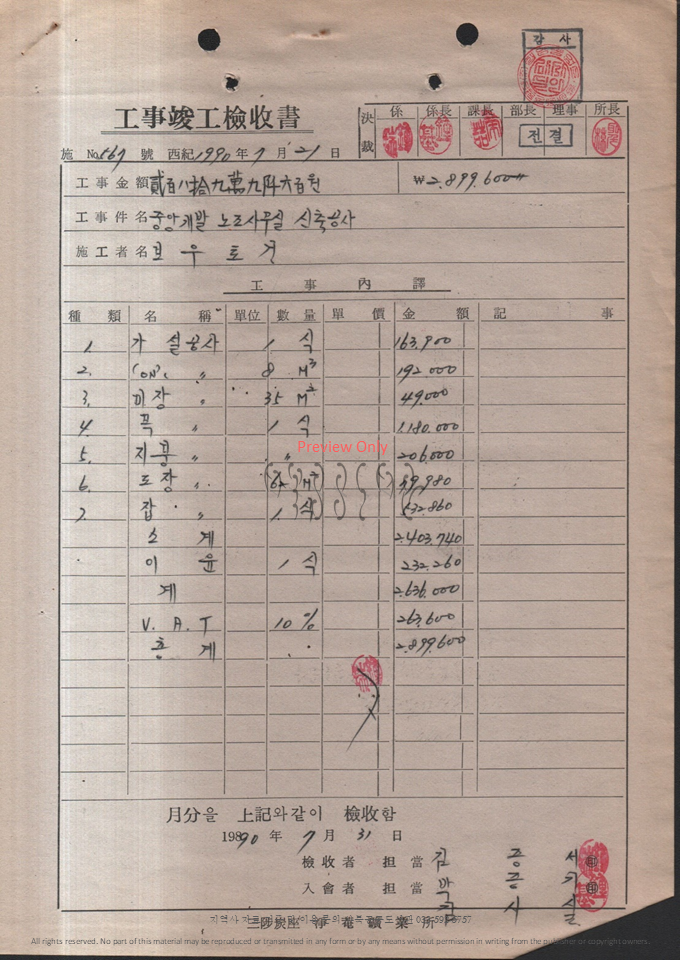 감사
工事竣工檢收書
決裁 係 係長 課長 部長 理事 所長
전결
施 No.567 號 西紀 1990 年 7 月 21 日
工事金額 貳百八拾九萬九阡六百원 ₩2.899.600
工事件名 중앙개발 노조사무실 신축공사
施工者名 보우토건
工事內譯
種類 名稱 單位 數量 單價 金額 記事
1. 가설공사 1 식 163.900
2. CON'c 〃 8 M³ 192.000
3. 미장 〃 35 M² 49.000
4. 목 〃 1 식 1.180.000
5. 지붕 〃 〃 206.000
6. 도장 〃 M²
7. 잡 〃 1 식 532.860
소계 2.403.740
이윤 1 식 232.260
계 2.636.000
V. A. T 10 % 263.600
총계 2.899.600
Preview Only
月分을 上記와같이 檢收함
1990 年 7 月 31 日
檢收者 擔當 김
入會者 擔當 박
三陟炭座 淨菴鑛業所
All rights reserved. No part of this material may be reproduced or transmitted in any form or by any means without permission in writing from the publisher or copyright owners.